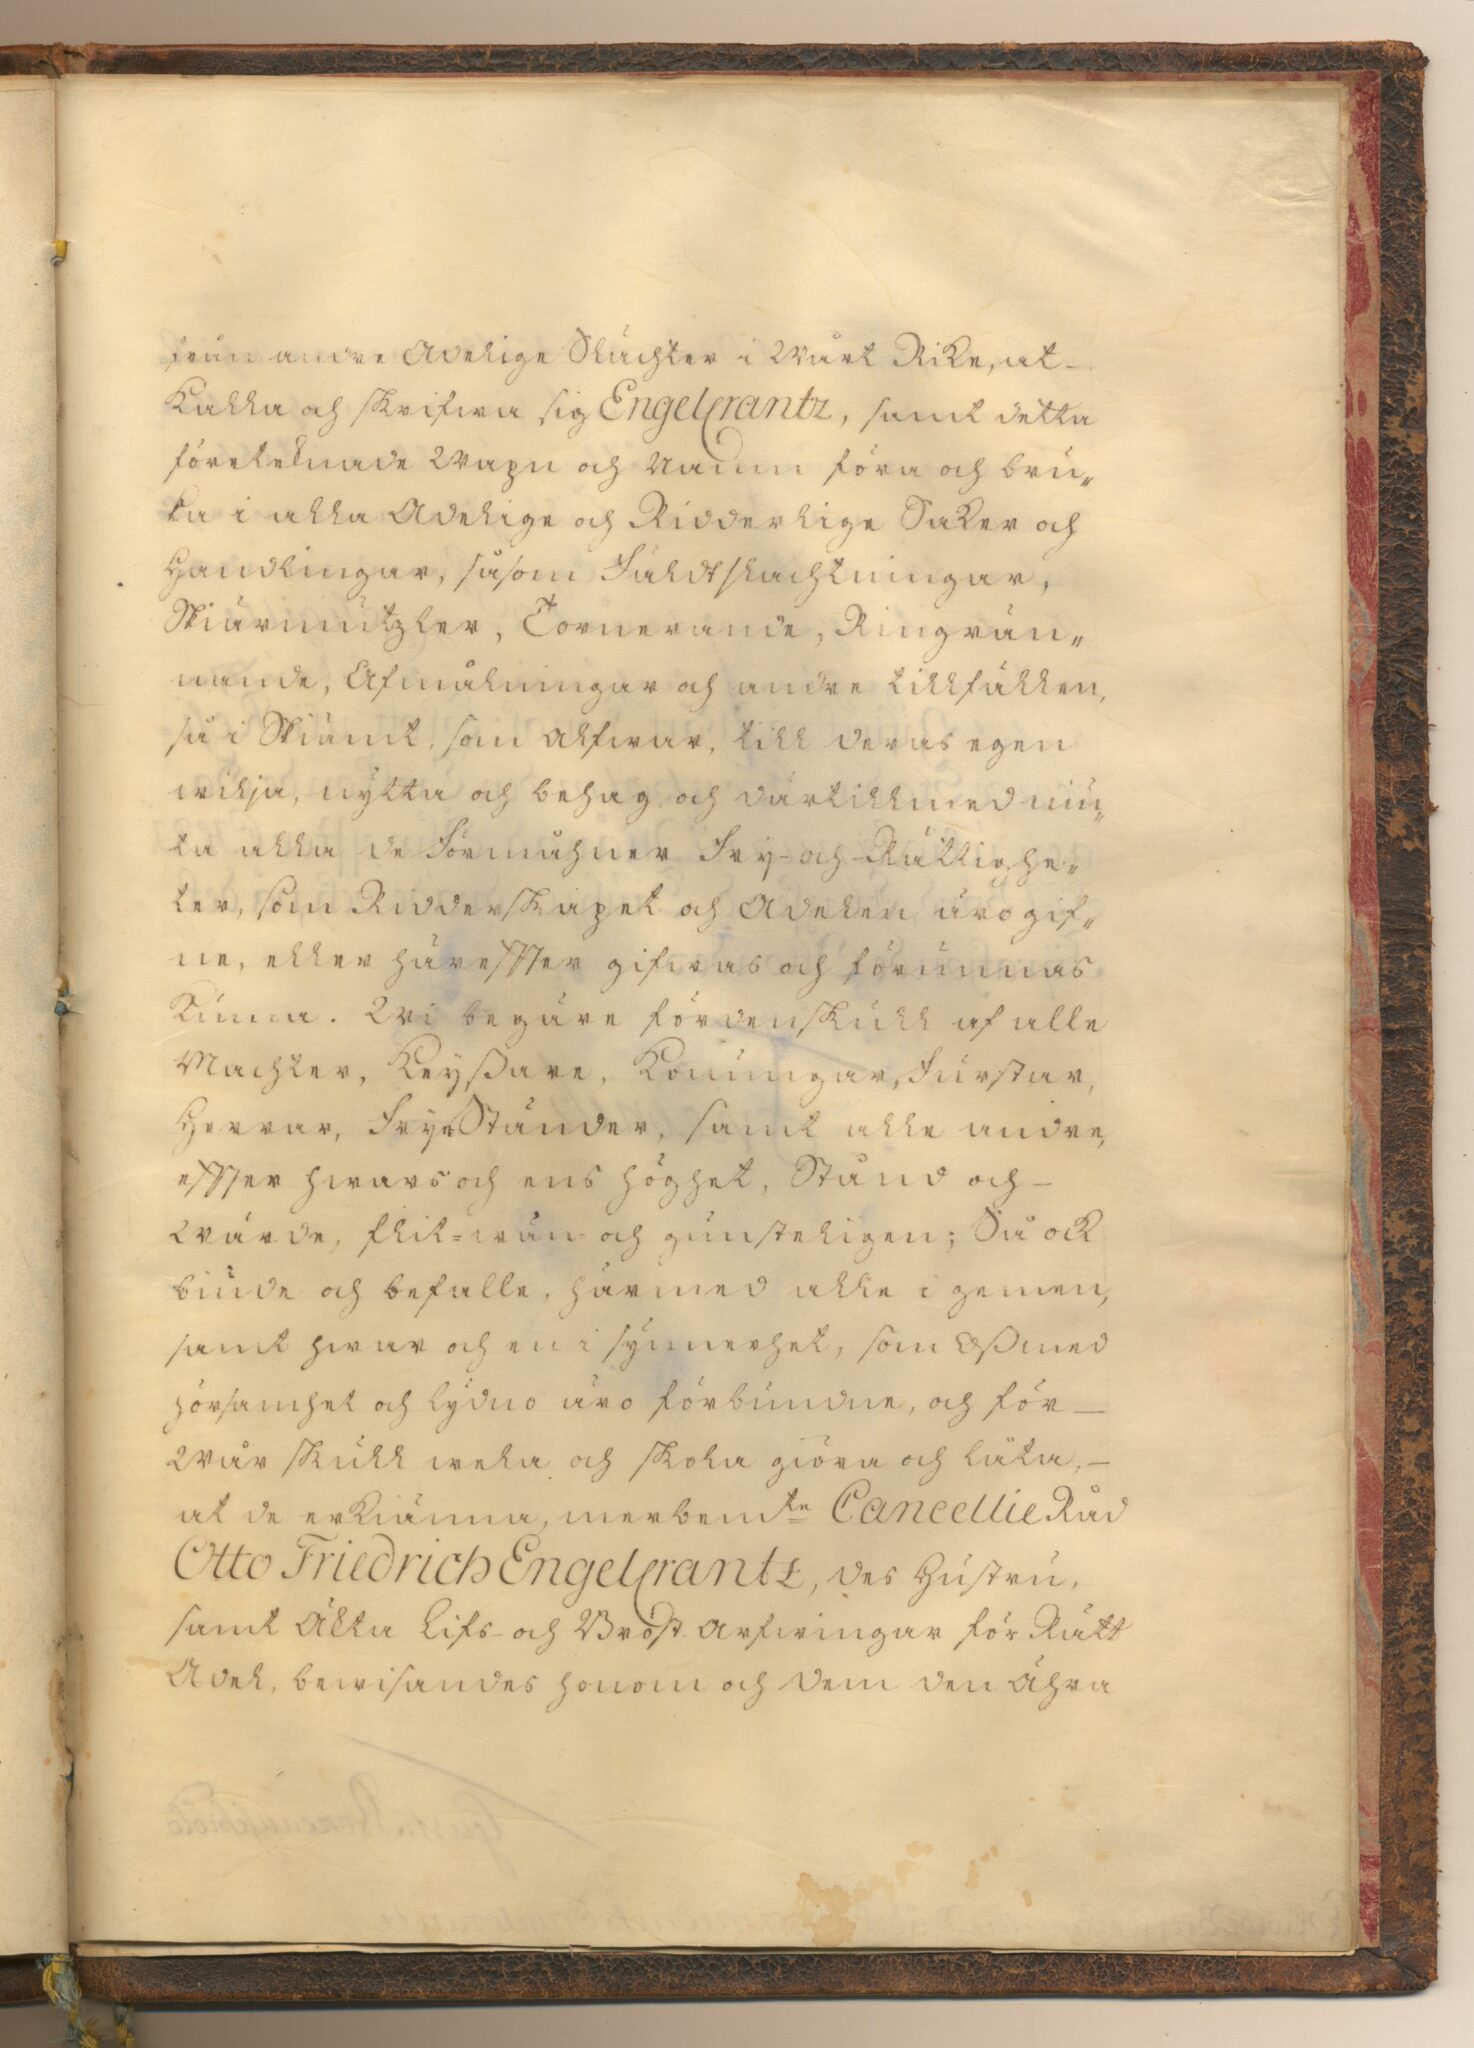 från andre Adelige Slächter i Wårt Rike, at-
kalla och skrifwa sig Engelcrantz, samt detta
företeknade Wapn och Namn föra och bru„
ka i alla Adelige och Ridderlige Saker och
Handlingar, såsom Fäldtslachtningar,
Skiärmützler, Tornerande, Ringrän„
nande, Afmålningar och andre tillfällen,
så i Skiämt, som Alfwar, till deras egen
wilja, nytta och behag, och därtillmed niu„
ta alla de Förmåhner Fry-och-Rättighe„
ter, som Ridderskapet och Adelen äro gif„
ne, eller häreffter gifwas och förunnas
kunna. Wi begäre fördenskull af alle
Machter, Keyßare, Konungar, Furstar,
Herrar, Frye Ständer, samt alle andre,
effter hwars och ens höghet, Stånd och-
Wärde, flit-wän-och gunsteligen; Så ock
biude och befalle, härmed alle i gemen,
samt hwar och en i synnerhet, som Oß med
hörsamhet och lydno äro förbundne, och för-
Wår skull wela och skola giöra och låta,-
at de erkiänna, merbemte Cancellie Råd
Otto Friedrich Engelcrantz, des Hustru,
samt Äkta Lifs-och Bröst-Arfwingar för Rätt
Adel, bewisandes honom och dem den Ähra